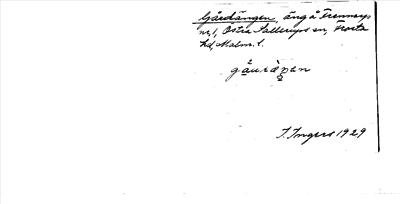 Gårdängen, äng å Frennarps
nr 1, Östra Sallerups sn, Frosta
hd, Malm. l.
I. Ingers 1929